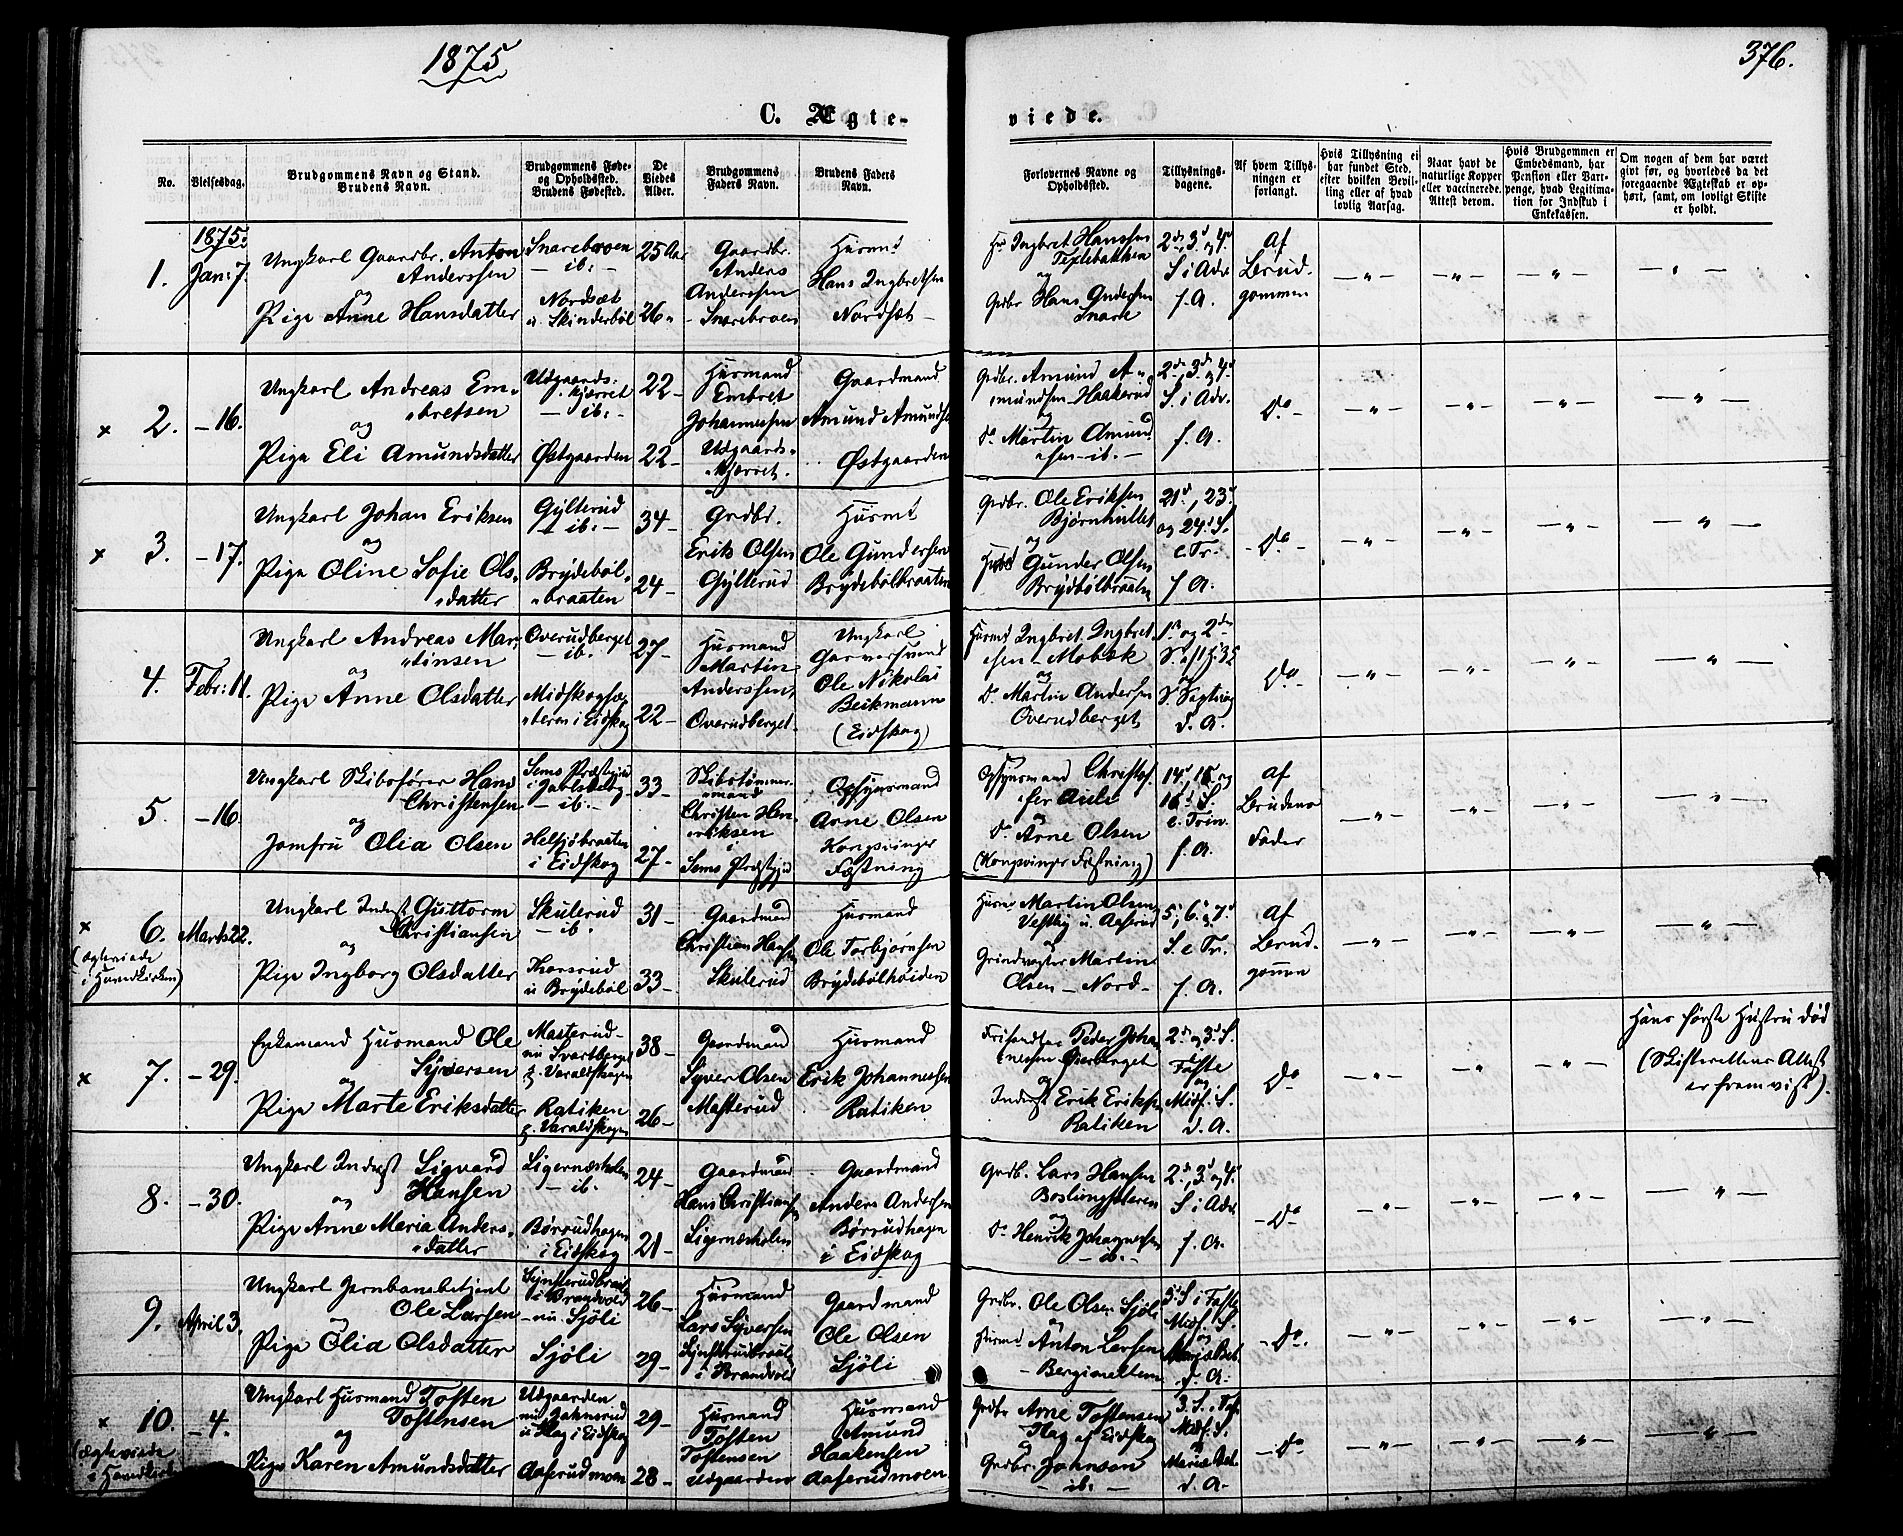 1875
376.
C. Ægte-
viede.
No.
Vielsesdag.
Brudgommens Navn og Stand.
Brudens Navn.
Brudgommens Føde-
og Opholdssted.
Brudens Fødested.
De
Viedes
Alder.
Brudgommens
Faders Navn.
Brudens Faders
Navn.
Forlovernes Navne og
Opholdssted.
Tillysnings-
dagene.
Af hvem Tillys-
ningen er
forlangt.
Hvis Tillysning ei
har fundet Sted,
efter hvilken Bevil-
ling eller af hvad
lovlig Aarsag.
Naar havt de
naturlige Kopper
eller vaccinerede.
Attest derom.
Hvis Brudgommen er
Embedsmand, har
Pension eller Vart-
penge, hvad Legitima-
tion for Indskud i
Enkekassen.
Om nogen af dem har været
gift før, og hvorledes da det
foregaaende Ægteskab er op-
hørt, samt, om lovligt Skifte
er holdt.
1875:
1.
Jan: 7.
Ungkarl Gaardbr. Anton
Anderssen
og
Pige Anne Hansdatter
Snarebroen
- ib. -
Nordsæt
u. Skinderböl
25 Aar
26 "
Gaardbr.
Anders
Anderssen
- Snarebroen
Husmd
Hans Ingbretsen
Nordsæt -
Hr Ingbret Hanssen
Texlebakken
og
Grdbr Hans Andersen
Snare
2d, 3d og 4d
S. i Adv.
f. A.
Af
Brud-
gommen
- " -
- " -
- " -
- " -
x 2.
- 16.
Ungkarl Andreas Em-
"bretsen
og
Pige Eli Amundsdatter
Udgaards-
kjærret
- ib. -
Østgaarden
22 -
22 -
Husmand
Embret
Johannessen
Udgaards-
"kjærret.
Gaardmand
Amund Amundsen
Østgaarden
Grdbr. Amund A-
"mundsen Haakerud
og
Do Martin Amund
"sen - ib. -
2d, 3d og 4d
S. i Adv.
f. A.
Do -
- " -
- " -
- " -
- " -
x 3.
- 17.
Ungkarl Johan Eriksen
og
Pige Oline Sofie Ols-
"datter
Gylterud
- ib. -
Brydeböl-
"braaten
34 -
24 -
Grdbr.
Erik Olsen
Gylterud
Husmd
Ole Gundersen
Brydebölbraaten
Grdbr. Ole Eriksen
Bjørnhullet
og
Husmd Gunder Olsen
Brydebölbraaten
21d, 23d
og 24d S.
e. Tr.
f. A.
- Do -
- " -
- " -
- " -
- " -
4.
Febr: 11.
Ungkarl Andreas Mar-
"tinsen
og
Pige Anne Olsdatter
Overudberget
- ib. -
Midskogsæ-
"teren i Eidskog
27 -
22 -
Husmand
Martin
Anderssen,
Overudberget
Ungkarl
Garversvend
Ole Nikolai
Beikmann
(Eidskog)
Husmd Ingbret Ingbret
"sen - Mobæk
og
Do Martin Andersen
Overudberget
1ste og 2den
d. A.
Do -
- " -
- " -
- " -
- " -
5.
- 16.
Ungkarl Skibsfører Hans
Christensen
og
Jomfru Olia Olsen
Sems Præstegjd
i Jarlsberg
- ib. -
Helsjöbraaten
i Eidskog
33 -
27 -
Skibstømmer-
"mand
Christen Hen-
"riksen
i
Sems Præstegjd
Opsynsmand
Arne Olsen
Kongsvinger
Fæstning
Opsynsmand Christof-
"fer Auli
og
Do Arne Olsen
(Kongsvinger Fæstning)
14d, 15d og
16d S.
e. Trin.
f. A.
af
Brudens
Fader
- " -
- " -
- " -
- " -
x 6.
(ægteviede
i Hovedkirken)
Marts 22.
Ungkarl Inderst Guttorm
Christiansen
og
Pige Ingborg Olsdatter
Skulerud
- ib. -
Thorsrud
u Brydeböl
31 -
33 -
Gaardmand
Christian Hansen
Skulerud
Husmand
Ole Torbjørnsen
Brydebölhöiden
Husmd Martin Olsen
Vestby u. Aaserud
og
Grindvogter Martin
Olsen - Nord -
5, 6 og 7d
S. e Tr.
f. A.
af
Brud-
gommen
- " -
- " -
- " -
- " -
x 7.
- 29.
Enkemand Husmand Ole
Syversen
og
Pige Marte Eriksdatter
Masterud -
nu Svartberget
p. Varaldskogen
Ratiken
p. Varaldskogen
38 -
26 -
Gaardmand
Syver Olsen
Masterud
Husmand
Erik Johannessen
Ratiken
Peder Johan
"nessen
og
Inderst Erik Eriksen
Ratiken
2d og 3d S.
i
Faste
og
Midf. S.
d. A.
Do
- " -
- " -
- " -
Hans første Hustru död
(Skifterettens Attest
er fremvist).
8.
- 30.
Ungkarl Inderst Sigvard
Hansen
og
Pige Anne Maria Anders-
"datter
Ligernæsholen
- ib.
Börrudhagen
i Eidskog
24 -
21 -
Gaardmand
Hans Christiansen
Ligernæsholen
Gaardmand
Anders Andersen
Börrudhagen
i Eidskog
Grdb. Lars Hansen
og
Do Henrik Johannessen
- ib. -
2d, 3d og 4d
S. i Adv.
f. A.
- Do -
- " -
- " -
- " -
- " -
9.
April 3.
Ungkarl Jernbanebetjent
Ole Larsen
og
Pige Olia Olsdatter
i Brandvold
- nu - Sjöli
Sjöli
26 -
29 -
Husmand
Lars Syversen
i Brandvold
Gaardmand
Ole Olsen
Sjöli
Grdbr. Ole Olsen Sjöli
og
Husmd Anton Larsen
- Bergimellem
3d S i Faste
Midf. S.
og
Mariæ Beb.
d. A.
- Do -
- " -
- " -
- " -
- " -
x 10.
(ægteviede
i Hovedkirken
- 4.
Ungkarl Husmand Tosten
Tostensen
og
Pige Karen Amundsdatter
Udgaarden
i Eidskog
Aaserudmoen
29 -
28 -
Husmand
Tosten
Tostensen
Udgaarden
Husmand
Amund
Haakensen
Aaserudmoen
Grdbr Arne Tostensen
Flag af Eidskog
og
Grdbr. Johnson
- ib. -
3. S. i Fas.
Midf. S.
og
Mariæ Beb.
d. A.
- Do
- " -
- " -
- " -
- " -